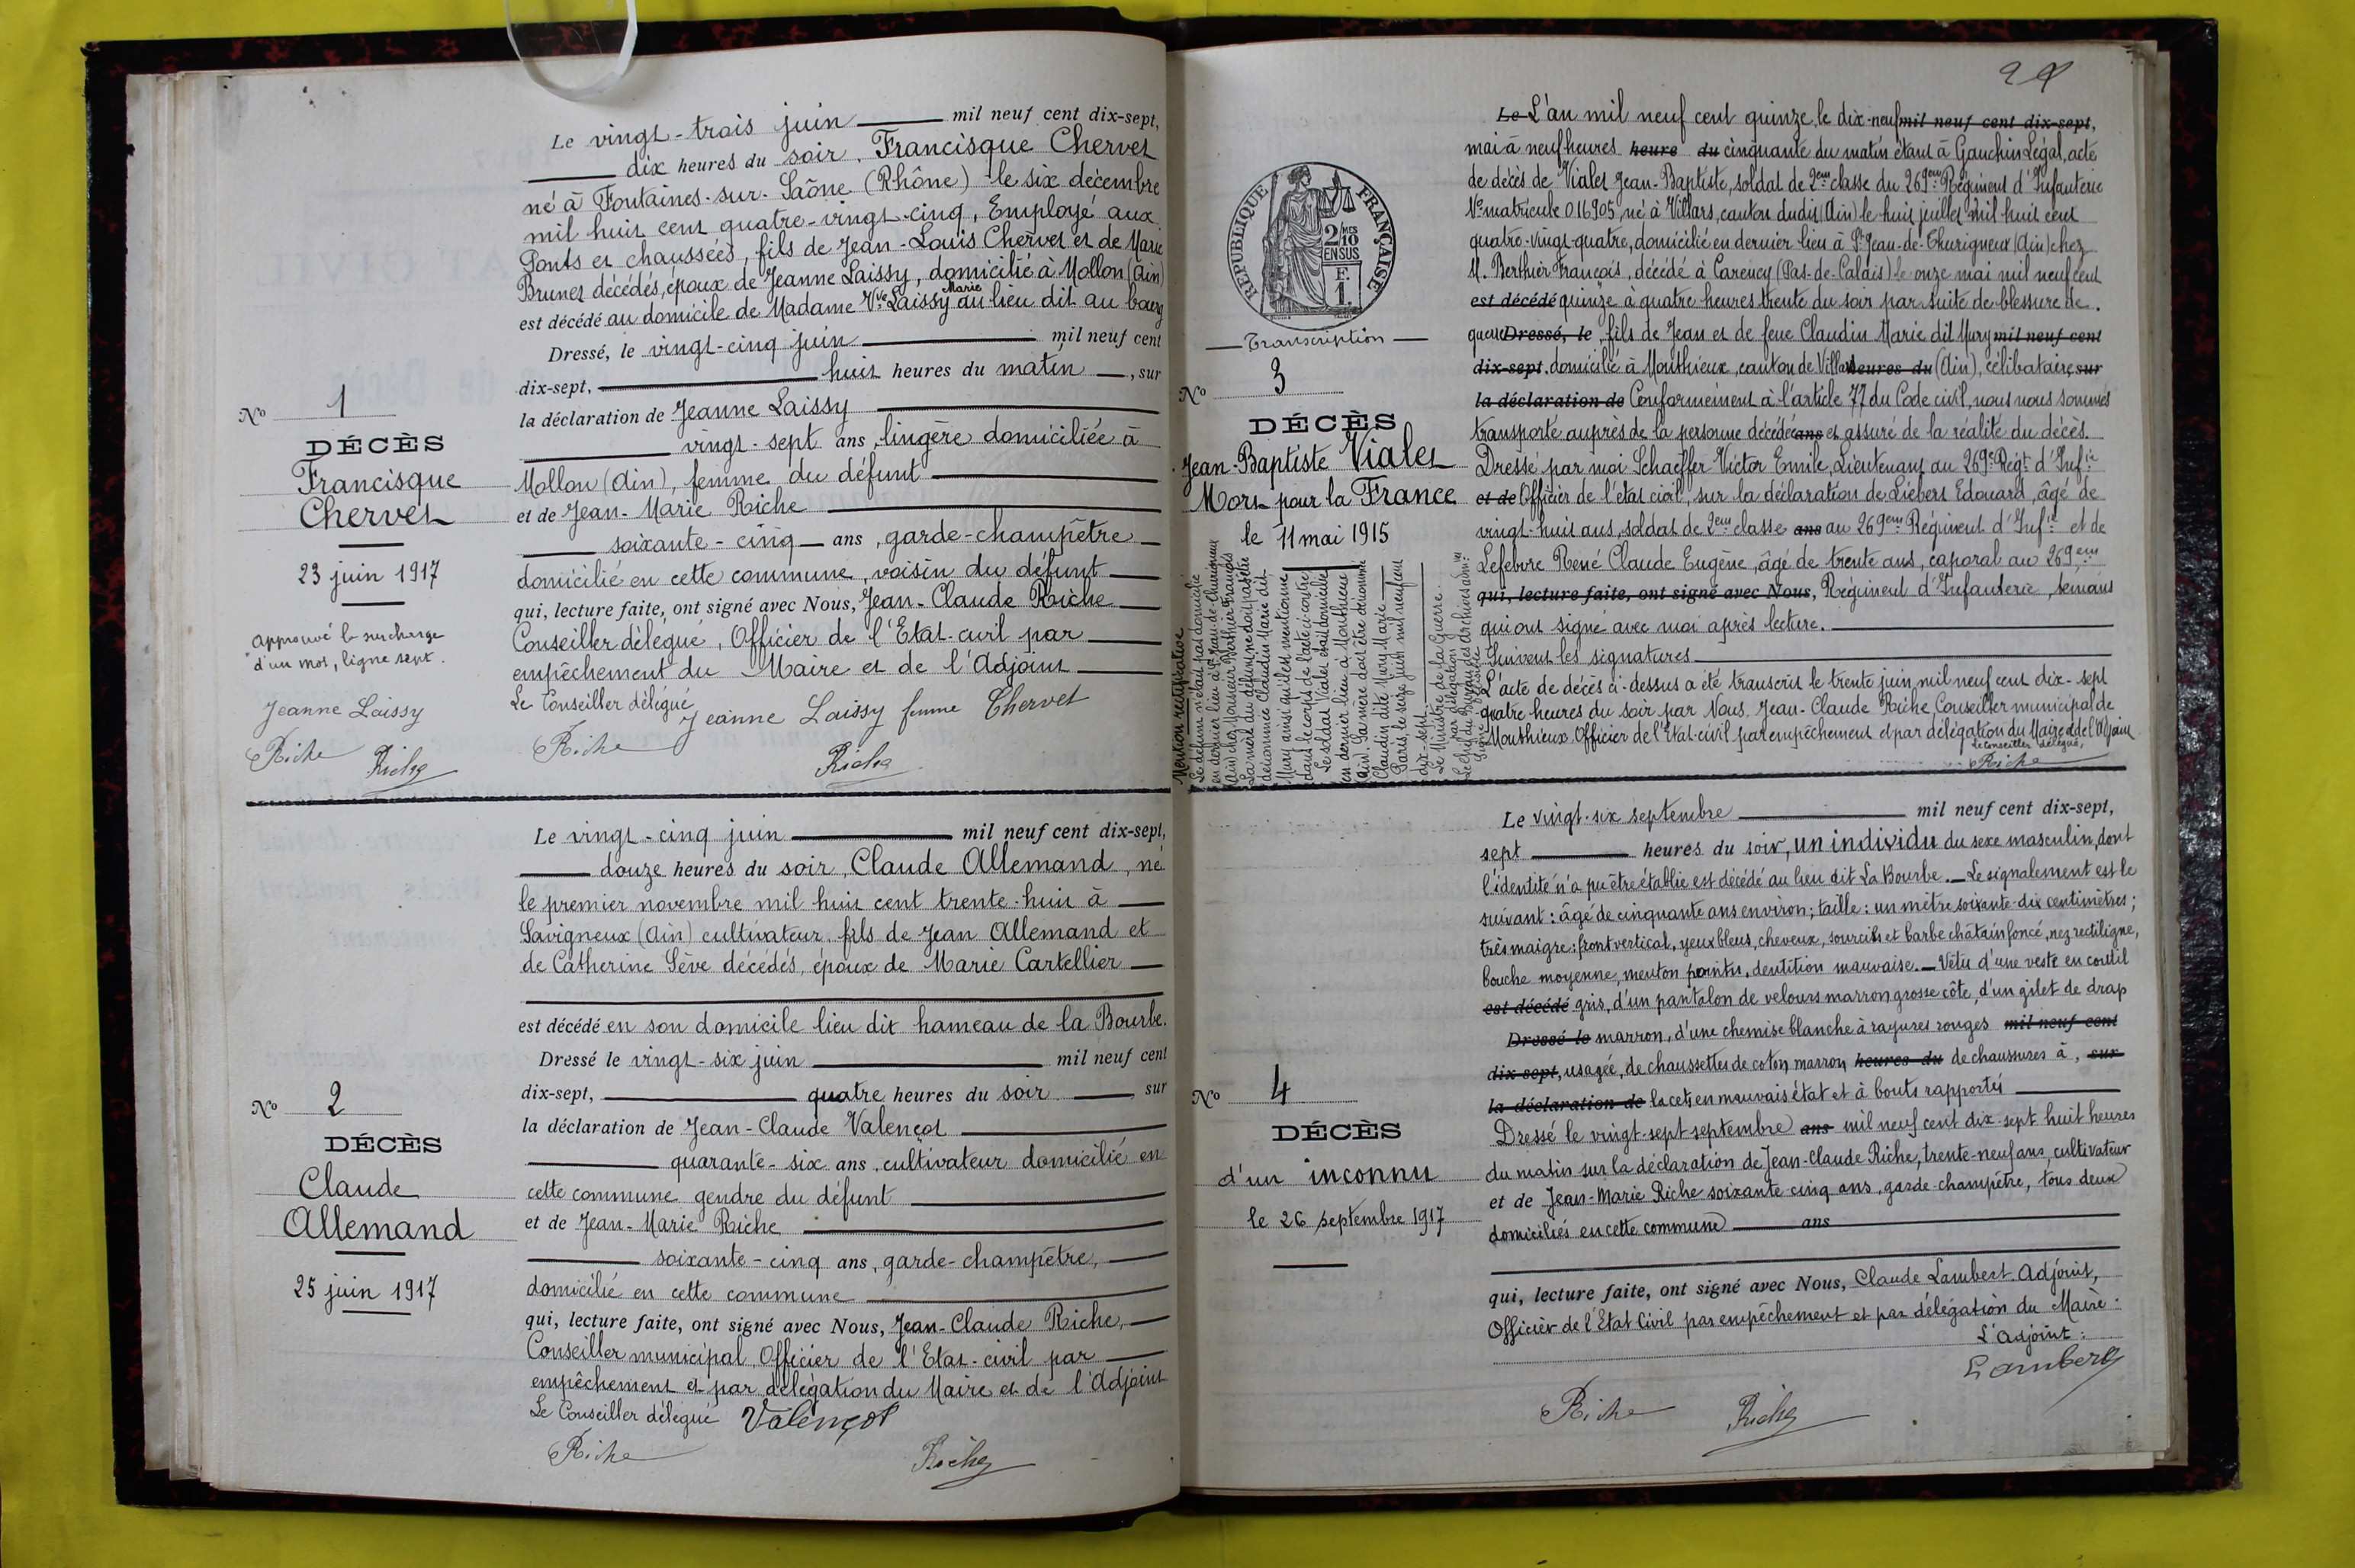 Le vingt-trois juin mil neuf cent dix-sept,
dix heures du soir, Francisque Chervet
né à Fontaines-sur-Saône (Rhône) le six décembre
mil huit cent quatre-vingt-cinq, Employé aux
Ponts et chaussées, fils de Jean-Louis Chervet et de Marie
Brunet décédés, époux de Jeanne Laissy, domicilié à Mollon (Ain)
est décédé au domicile de Madame Vve Laissy Marie au lieu dit au bourg
Dressé, le vingt-cinq juin mil neuf cent
dix-sept, huit heures du matin, sur
la déclaration de Jeanne Laissy
vingt-sept ans, lingère domiciliée à
Mollon (Ain), femme du défunt
et de Jean-Marie Riche
soixante-cinq ans, garde-champêtre
domicilié en cette commune, voisin du défunt
qui, lecture faite, ont signé avec Nous, Jean-Claude Riche
Conseiller délégué, Officier de l'Etat-civil par
empêchement du Maire et de l'Adjoint
Le Conseiller délégué
Jeanne Laissy femme Chervet
Riche
Riche
No 1
DÉCÈS
Francisque
Chervet
23 juin 1917
Approuvé la surcharge
d'un mot, ligne sept.
Jeanne Laissy
Riche Riche
Le vingt-cinq juin mil neuf cent dix-sept,
douze heures du soir, Claude Allemand, né
le premier novembre mil huit cent trente-huit à
Savigneux (Ain) cultivateur, fils de Jean Allemand et
de Catherine Sève décédés, époux de Marie Cartellier
est décédé en son domicile lieu dit hameau de la Bourbe.
Dressé le vingt-six juin mil neuf cent
dix-sept, quatre heures du soir, sur
la déclaration de Jean-Claude Valençot
quarante-six ans, cultivateur domicilié en
cette commune gendre du défunt
et de Jean-Marie Riche
soixante-cinq ans, garde-champêtre,
domicilié en cette commune
qui, lecture faite, ont signé avec Nous, Jean-Claude Riche,
Conseiller municipal, Officier de l'Etat-civil par
empêchement et par délégation du Maire et de l'Adjoint
Le Conseiller délégué Valençot
Riche Riche
No 2
DÉCÈS
Claude
Allemand
25 juin 1917
Le L'an mil neuf cent quinze, le dix-neuf mil neuf cent dix-sept,
mai à neuf heures heure du cinquante du matin étant à Gauchin Légal, acte
de décès de Vialet Jean-Baptiste, soldat de 2eme classe du 269eme Régiment d'Infanterie
No matricule 016905, né à Villars, canton dudit (Ain) le huit juillet mil huit cent
quatre-vingt-quatre, domicilié en dernier lieu à St Jean-de-Thurigneux (Ain) chez
M. Berthier François, décédé à Carency (Pas-de-Calais) le onze mai mil neuf cent
est décédé quinze à quatre heures trente du soir par suite de blessure de
guerre Dressé, le fils de Jean et de feue Claudin Marie dit Mury mil neuf cent
dix-sept, domicilié à Monthieux, canton de Villars heures du (Ain), célibataire, sur
la déclaration de Conformément à l'article 77 du Code civil, nous nous sommes
transporté auprès de la personne décédée ans et assuré de la réalité du décès.
Dressé par moi Schaeffer Victor Emile, Lieutenant au 269e Régt d'Infie
et de Officier de l'état civil, sur la déclaration de Liebert Edouard, âgé de
vingt-huit ans, soldat de 2eme classe ans au 269eme Régiment d'Infie et de
Lefebvre René Claude Eugène, âgé de trente ans, caporal au 269eme
qui, lecture faite, ont signé avec Nous, Régiment d'Infanterie, témoins
qui ont signé avec moi après lecture.
Suivent les signatures
L'acte de décès ci-dessus a été transcrit le trente juin mil neuf cent dix-sept
quatre heures du soir par Nous Jean-Claude Riche Conseiller municipal de
Monthieux Officier de l'Etat-civil par empêchement et par délégation du Maire et de l'Adjoint
Le conseiller délégué,
Riche
REPUBLIQUE FRANÇAISE
2/10 MES
EN SUS
F.
1.
Transcription
No 3
DÉCÈS
Jean-Baptiste Vialet
Mort pour la France
le 11 mai 1915
Mention rectificative
Le défunt n'était pas domicilié
en dernier lieu à St Jean-de-Thurigneux
(Ain) chez Monsieur Berthier François
La mère du défunt ne doit pas être
dénommée Claudin Marie dit
Mury ainsi qu'il est mentionné
dans le corps de l'acte ci-contre
Le soldat Vialet était domicilié
en dernier lieu à Monthieux
(Ain). Sa mère doit être dénommée
Claudin dite Mury Marie
Paris, le seize juin mil neuf cent
dix-sept
Le Ministre de la Guerre.
par délégation
Le chef du Bureau des Archives admves
Signé
Le vingt-six septembre mil neuf cent dix-sept,
sept heures du soir, un individu du sexe masculin, dont
l'identité n'a pu être établie est décédé au lieu dit La Bourbe. Le signalement est le
suivant: âgé de cinquante ans environ; taille: un mètre soixante-dix centimètres;
très maigre; front vertical, yeux bleus, cheveux, sourcils et barbe châtain foncé, nez rectiligne,
bouche moyenne, menton pointu, dentition mauvaise. Vêtu d'une veste en coutil
est décédé gris, d'un pantalon de velours marron grosse côte, d'un gilet de drap
Dressé le marron, d'une chemise blanche à rayures rouges mil neuf cent
dix-sept, usagée, de chaussettes de coton marron, heures du de chaussures à, sur
la déclaration de lacets en mauvais état et à bouts rapportés
Dressé le vingt-sept septembre ans mil neuf cent dix-sept huit heures
du matin sur la déclaration de Jean-Claude Riche, trente-neuf ans, cultivateur
et de Jean-Marie Riche soixante cinq ans, garde-champêtre, tous deux
domiciliés en cette commune ans
qui, lecture faite, ont signé avec Nous, Claude Lambert Adjoint,
Officier de l'Etat Civil par empêchement et par délégation du Maire:
L'adjoint:
Lambert
Riche Riche
No 4
DÉCÈS
d'un inconnu
le 26 septembre 1917